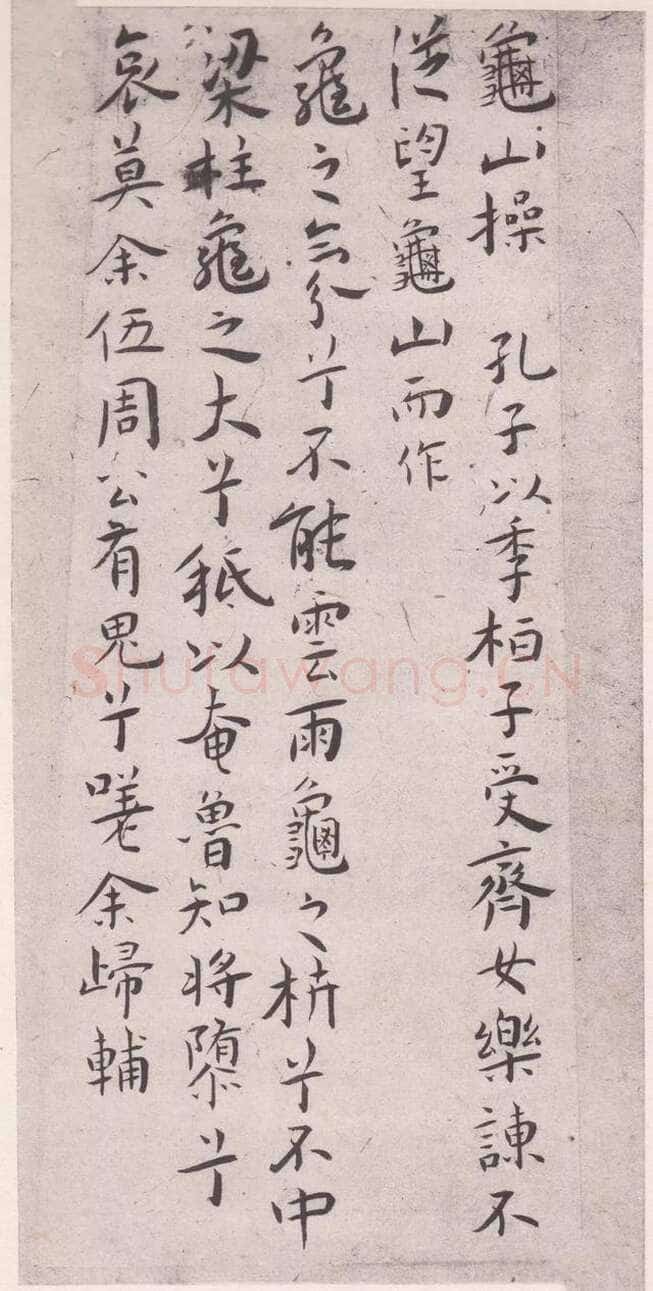 龜山操 孔子以季桓子受齊女樂諫不
從望龜山而作
龜之氛兮不能雲雨龜之枿兮不中
梁柱龜之大兮秖以奄魯知將隳兮
哀莫余伍周公有鬼兮嗟余歸輔
Shufawang.CN